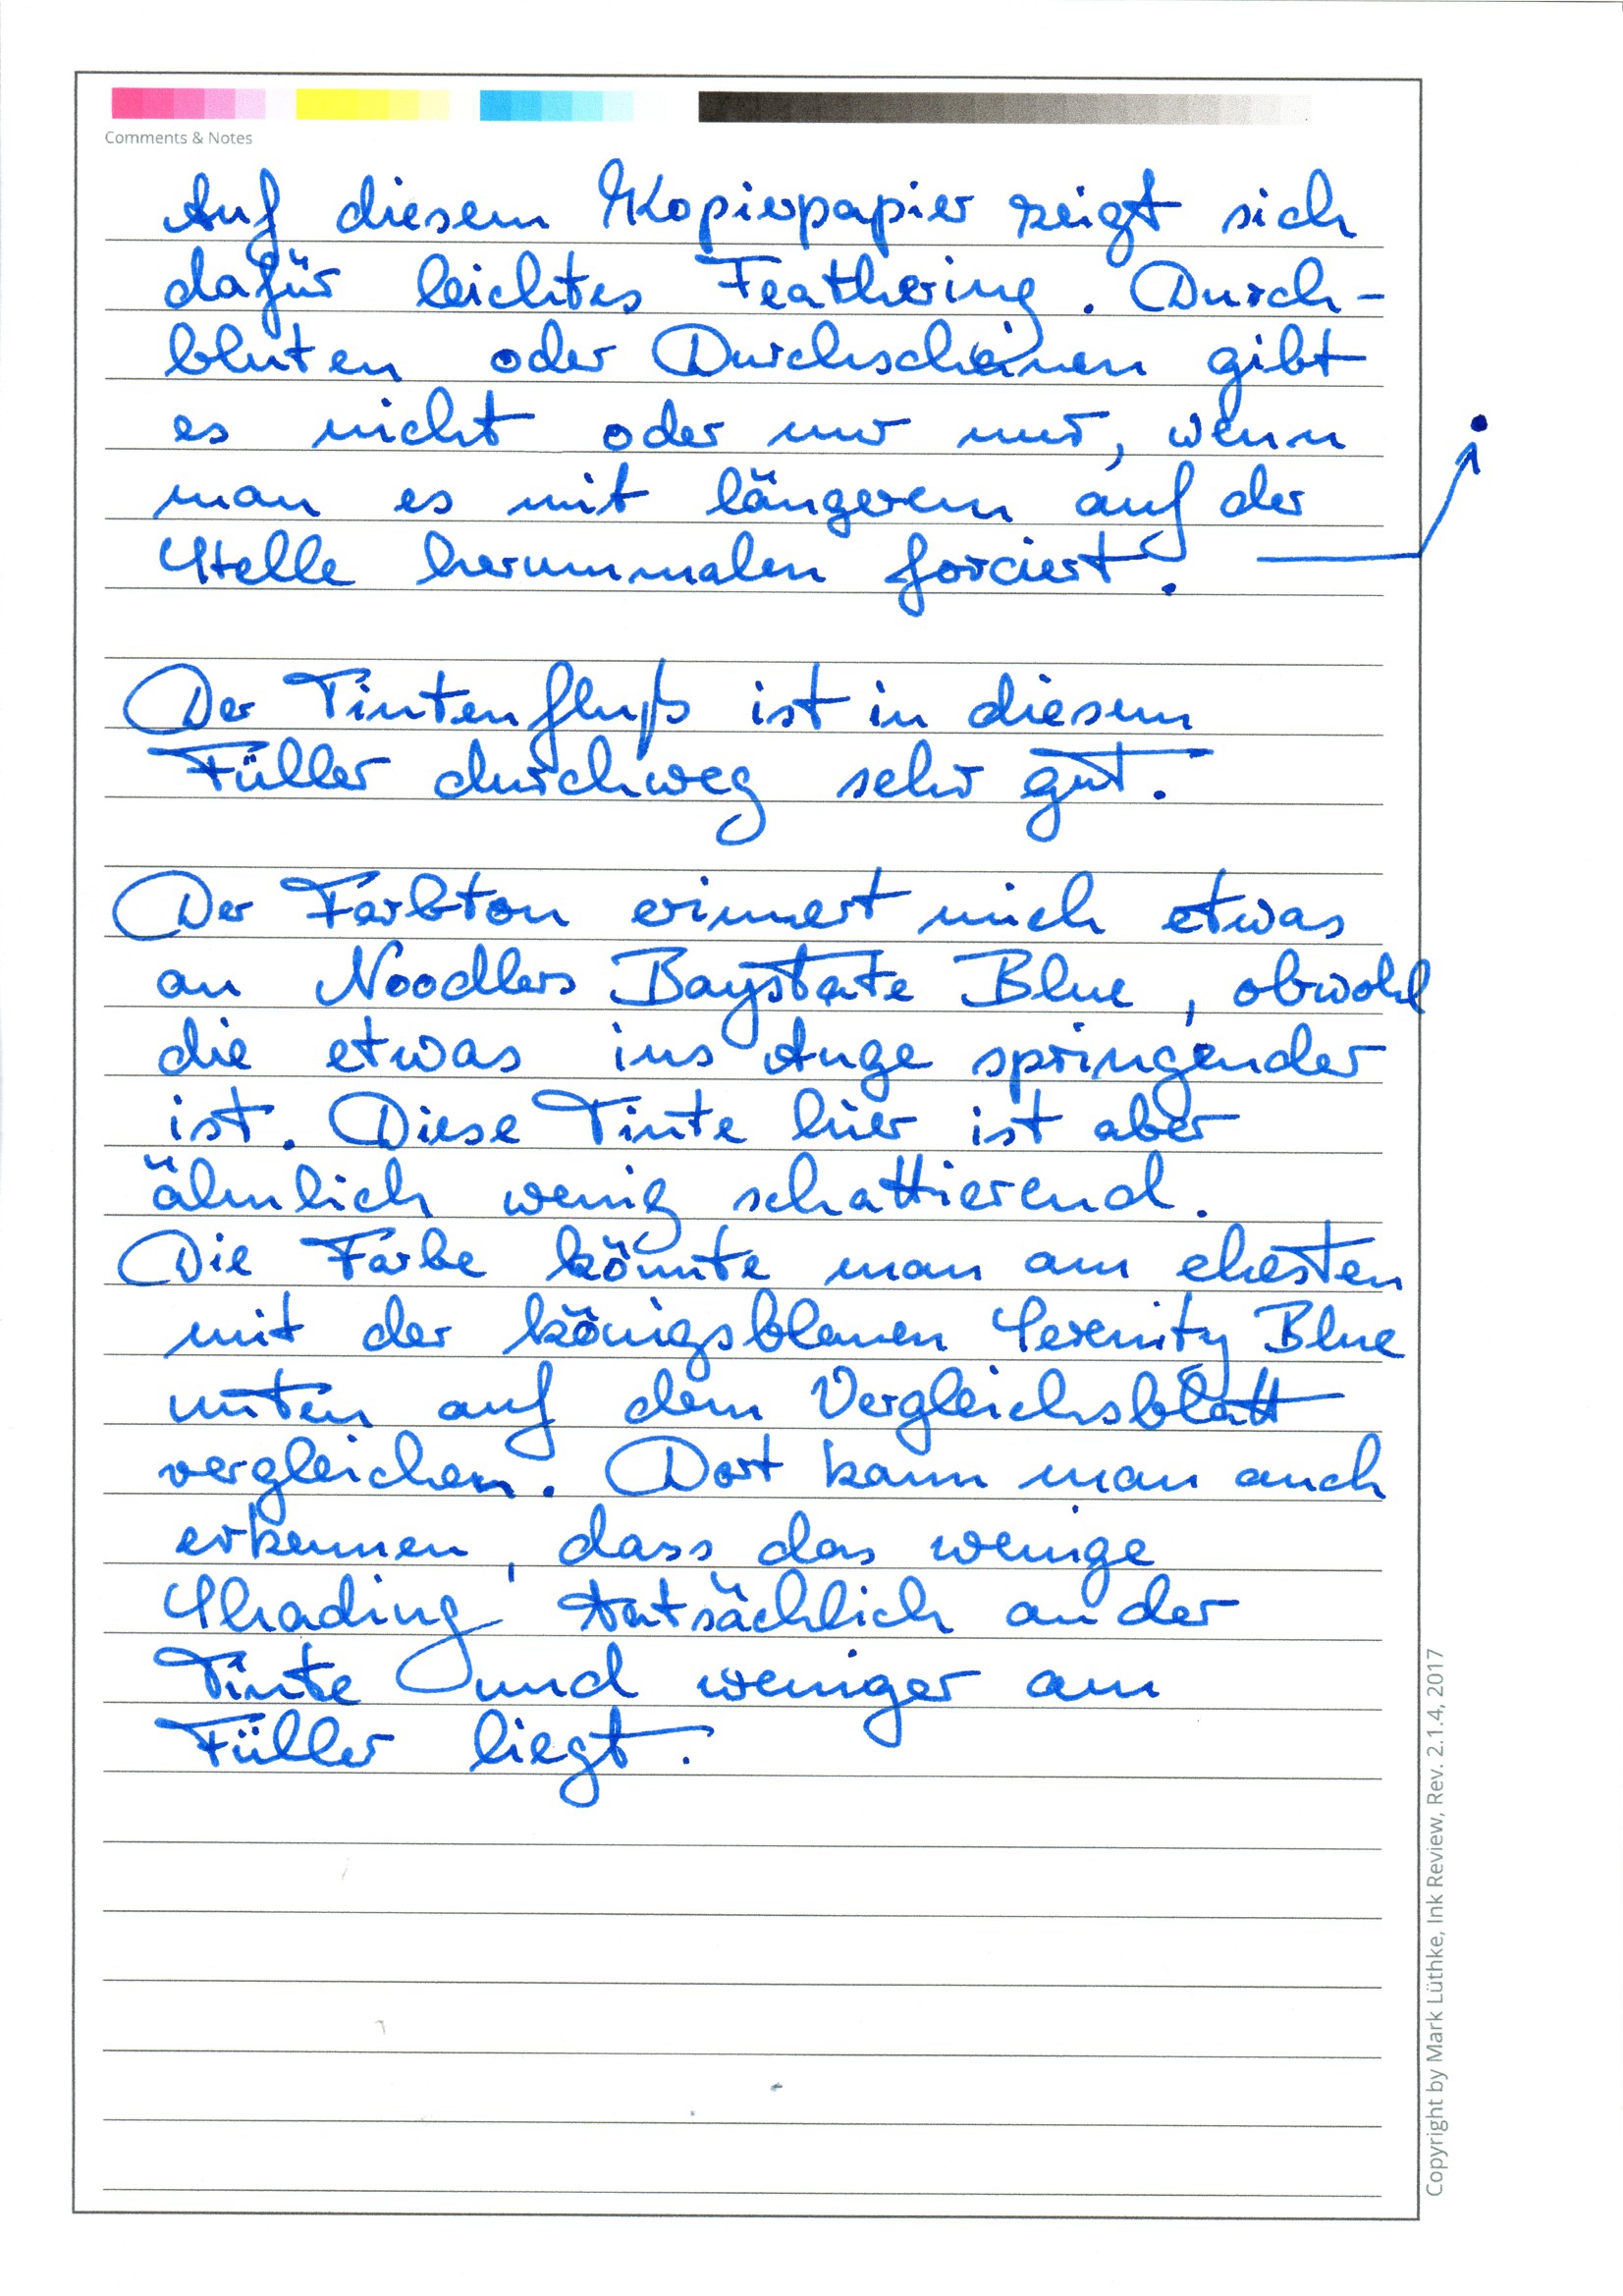 Comments & Notes
Auf diesem Kopierpapier zeigt sich
dafür leichtes Feathering. Durch-
bluten oder Durchscheinen gibt
es nicht oder nur nur, wenn
man es mit längerem auf der
Stelle herummalen forciert.
Der Tintenfluß ist in diesem
Füller durchweg sehr gut.
Der Farbton erinnert mich etwas
an Noodlers Baystate Blue, obwohl
die etwas ins Auge springender
ist. Diese Tinte hier ist aber
ähnlich wenig schattierend.
Die Farbe könnte man am ehesten
mit der königsblauen Serenity Blue
unten auf dem Vergleichsblatt
vergleichen. Dort kann man auch
erkennen, dass das wenige
Shading tatsächlich an der
Tinte und weniger am
Füller liegt.
Copyright by Mark Lüthke, Ink Review, Rev. 2.1.4, 2017